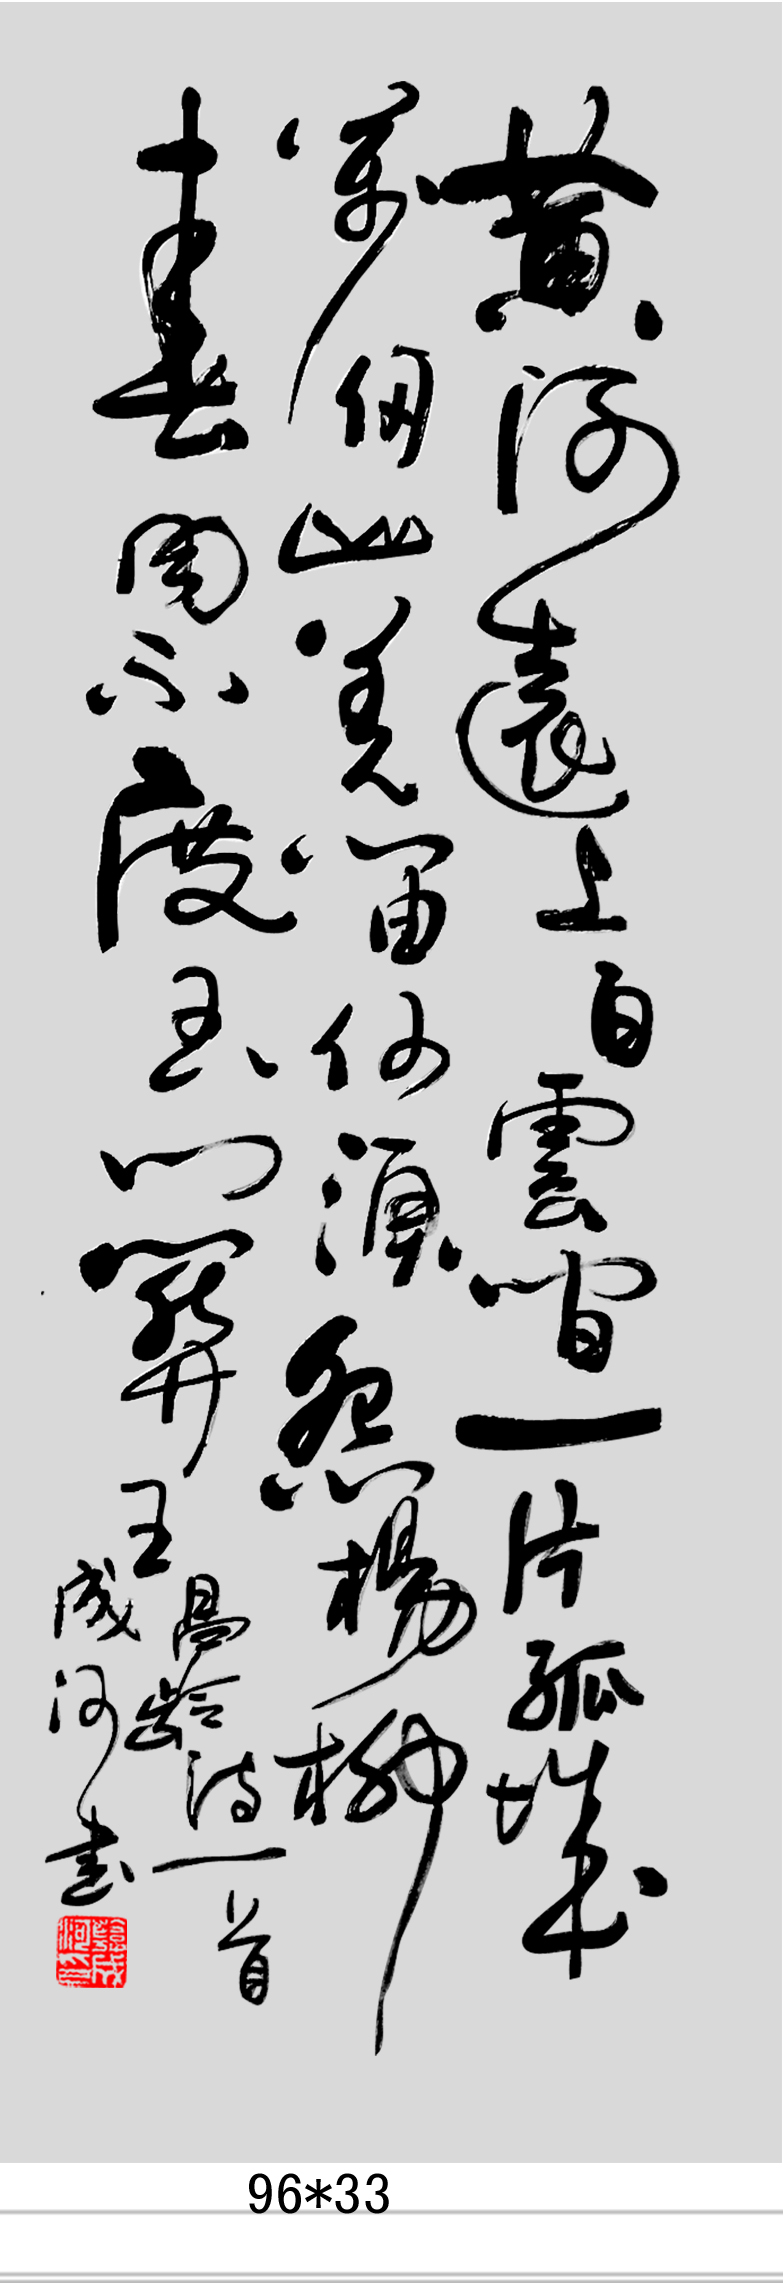 黄河遠上白雲間一片孤城
萬仞山羌笛何須怨楊柳
春風不度玉門關
王昌齡詩一首
成河書
96*33